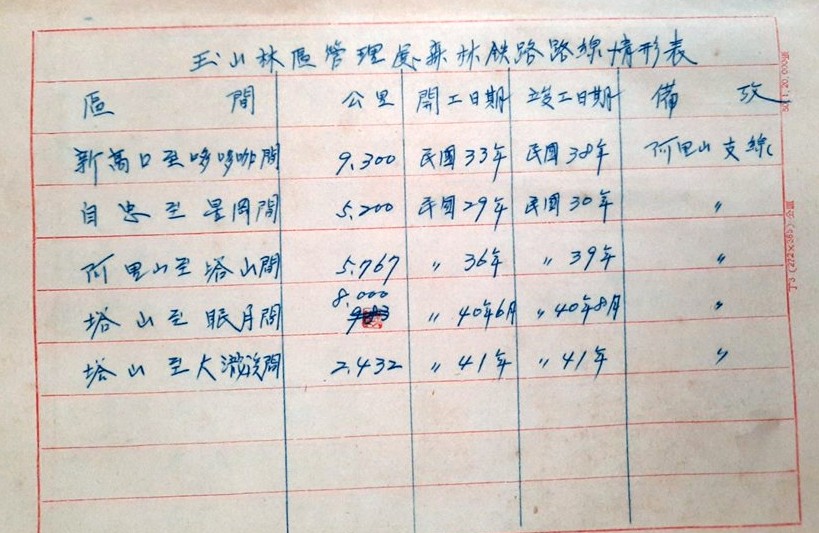 玉山林區管理處森林鉄路路線情形表
區 間 公里 開工日期 竣工日期 備 攷
新高口至哆哆咖間 9.300 民國33年 民國38年 阿里山支線
自忠至星岡間 5.200 民國29年 民國30年 〃
阿里山至塔山間 5.767 〃 36年 〃 39年 〃
8.000
塔山至眠月間 〃 40年6月 〃 40年8月 〃
塔山至大瀧溪間 2.432 〃 41年 〃 41年 〃